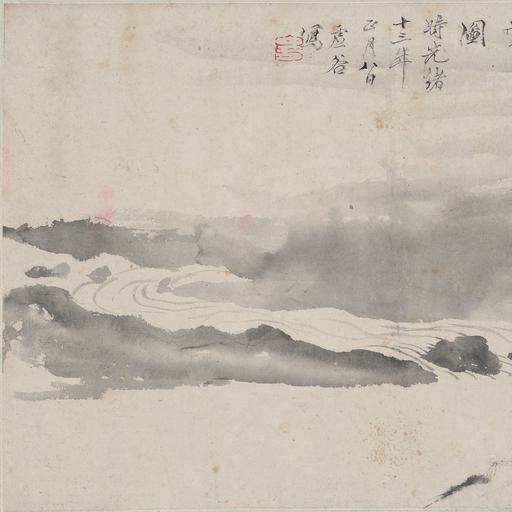 圖
時光緒
十三年
正月八日
虛谷
寫